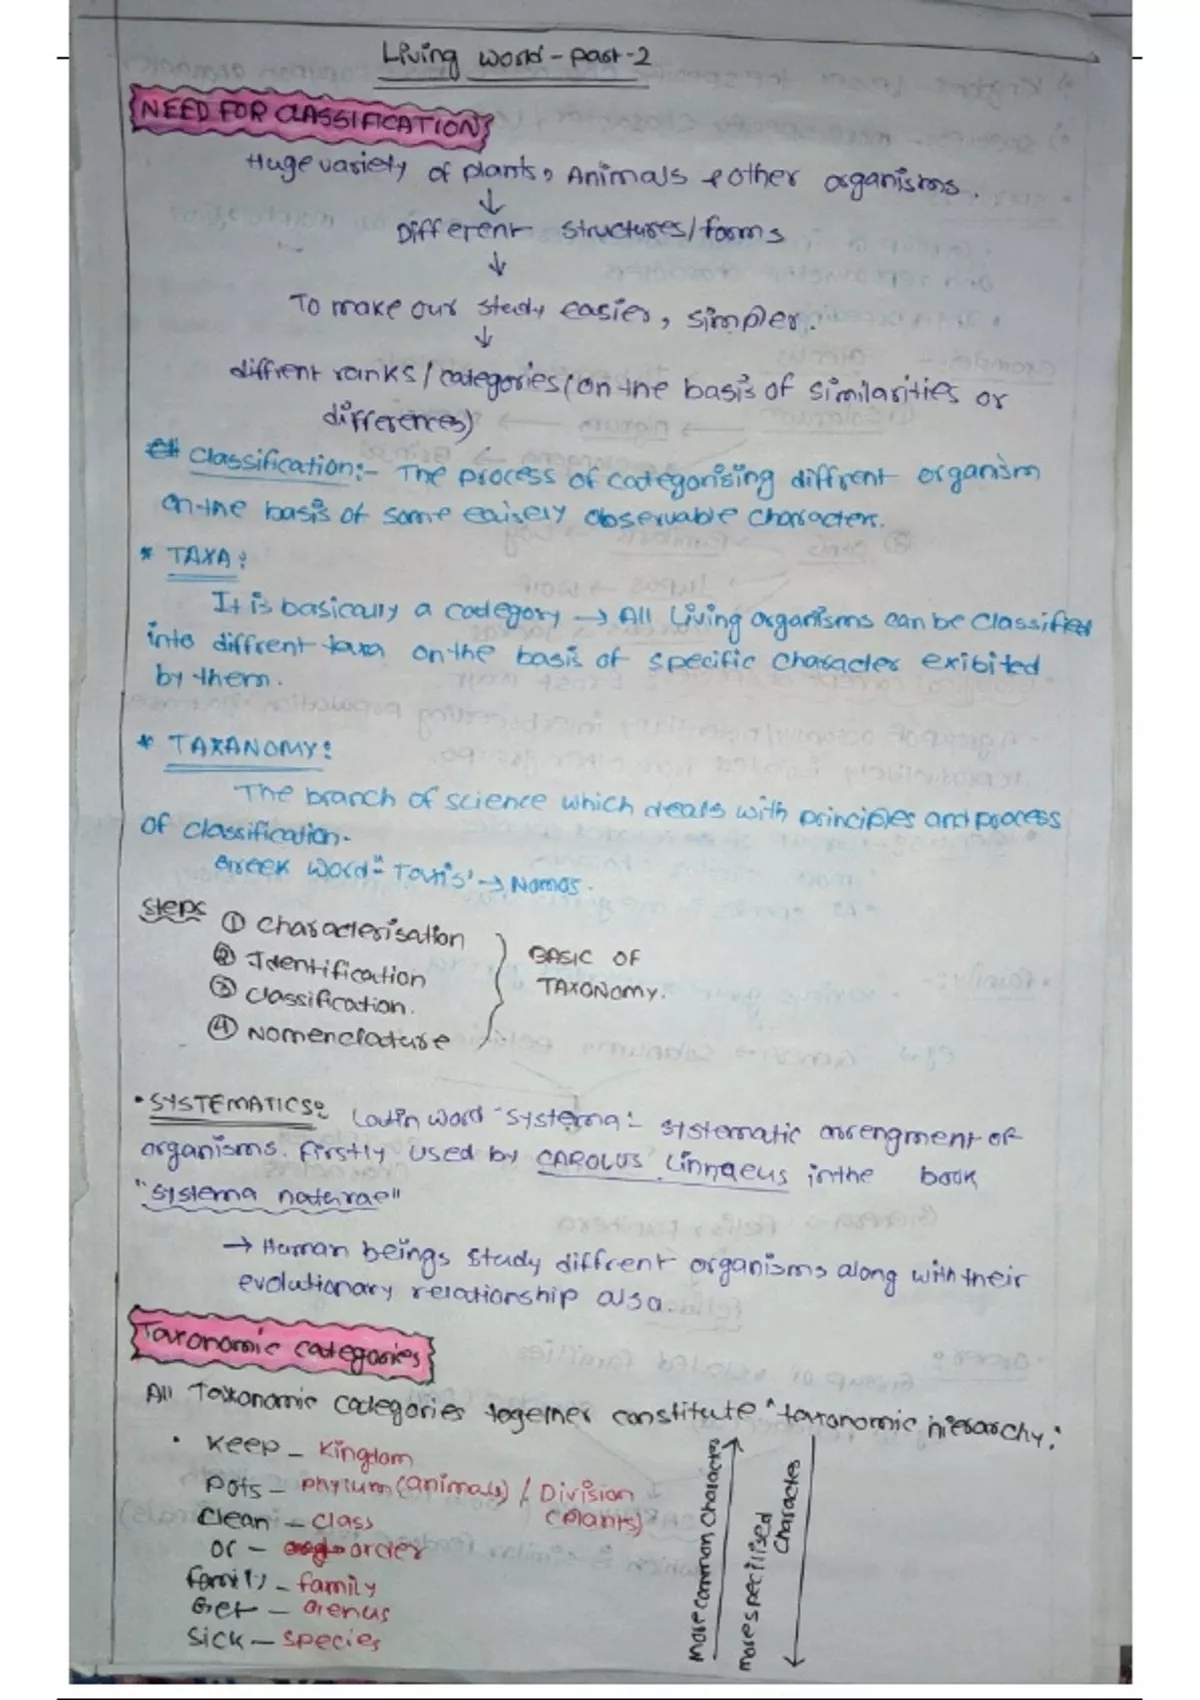 Living world - part-2
NEED FOR CLASSIFICATION
Huge variety of plants, Animals & other organisms.
↓
Different structures/forms
↓
To make our study easier, simpler.
↓
diffrent ranks / categories (on the basis of similarities or
differences)
Classification:- The process of categorising diffrent organism
on the basis of some eaisely observable characters.
* TAXA:
It is basically a category → All Living organisms can be classified
into diffrent taxa on the basis of specific character exibited
by them.
* TAXANOMY:
The branch of science which deals with principles and process
of classification.
Greek word - "Taxis' → Nomos.
Steps ① Characterisation
② Identification
③ Classification.
④ Nomenclature
BASIC OF
TAXONOMY.
• SYSTEMATICS: Latin word "systema:- systematic arrengment of
organisms. firstly used by CAROLUS Linnaeus in the book
"Systema naturae"
→ Human beings study diffrent organisms along with their
evolutionary relationship also.
Taxonomic categories
All Taxonomic categories together constitute "taxonomic hierarchy:
• Keep - Kingdom
Pots - phylum (animals) / Division
(plants)
Clean - class
or - order
family - family
Get - Genus
Sick - species
More common character
more specilised
character